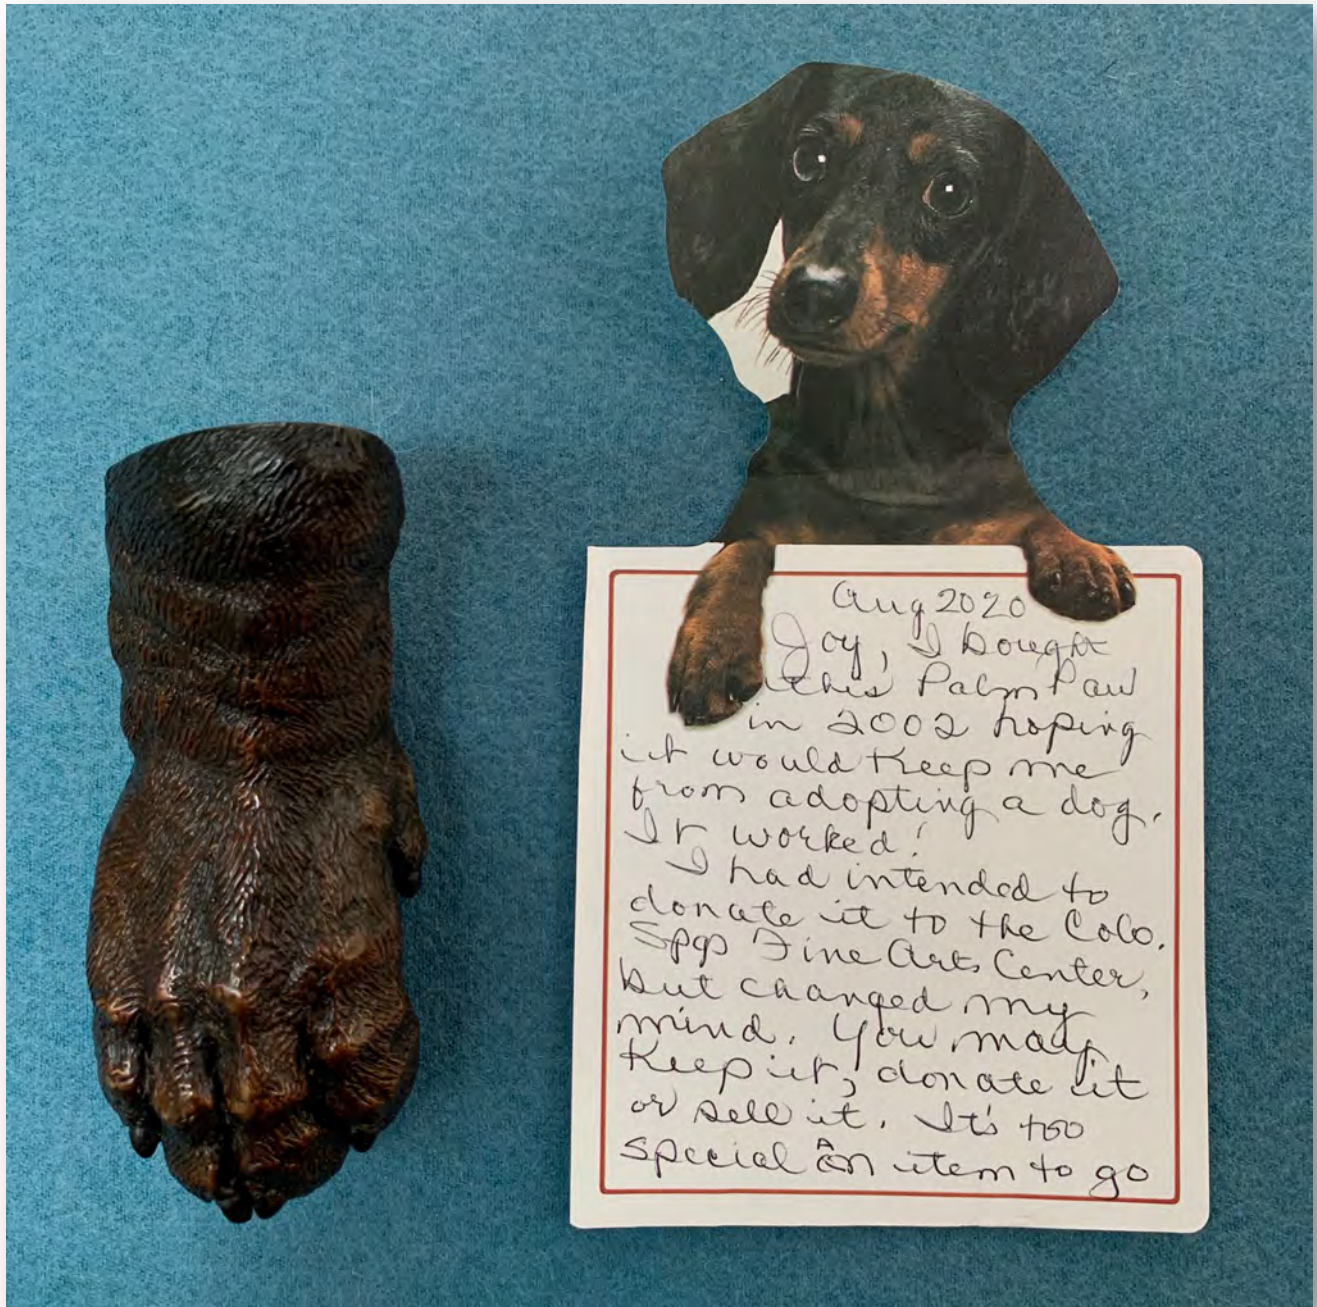 Aug 2020
Joy, I bought
this Palm Paw
in 2002 hoping
it would keep me
from adopting a dog.
It worked!
I had intended to
donate it to the Colo.
Spgs Fine Arts Center,
but changed my
mind. You may
keep it, donate it
or sell it. It's too
special an item to go